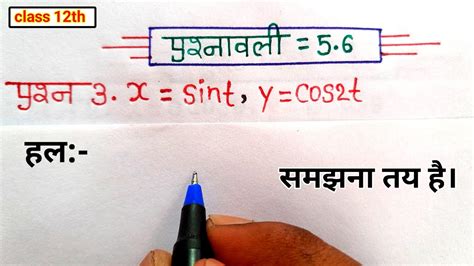 class 12th
प्रश्नावली = 5.6
प्रश्न 3. x = sint, y = cos2t
हल:-
समझना तय है।